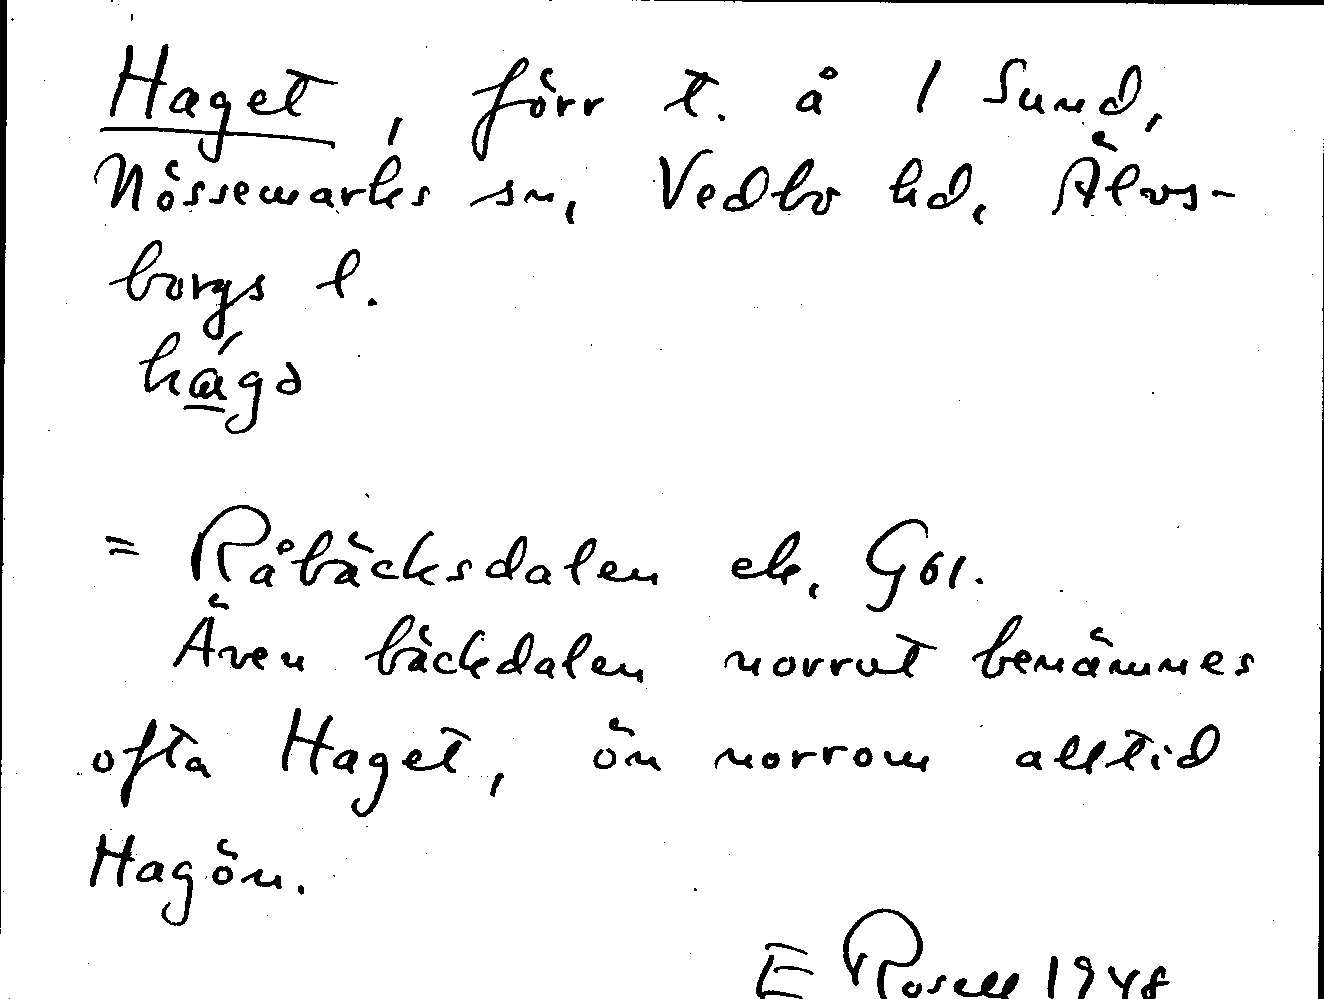 Haget, förr t. å 1 Sund,
Nössemarks sn, Vedbo hd, Älvs-
borgs l.
hágə
= Råbäcksdalen ek. G61.
Även bäckdalen norrut benämnes
ofta Haget, ön norrom alltid
Hagön.
E Rosell 1948